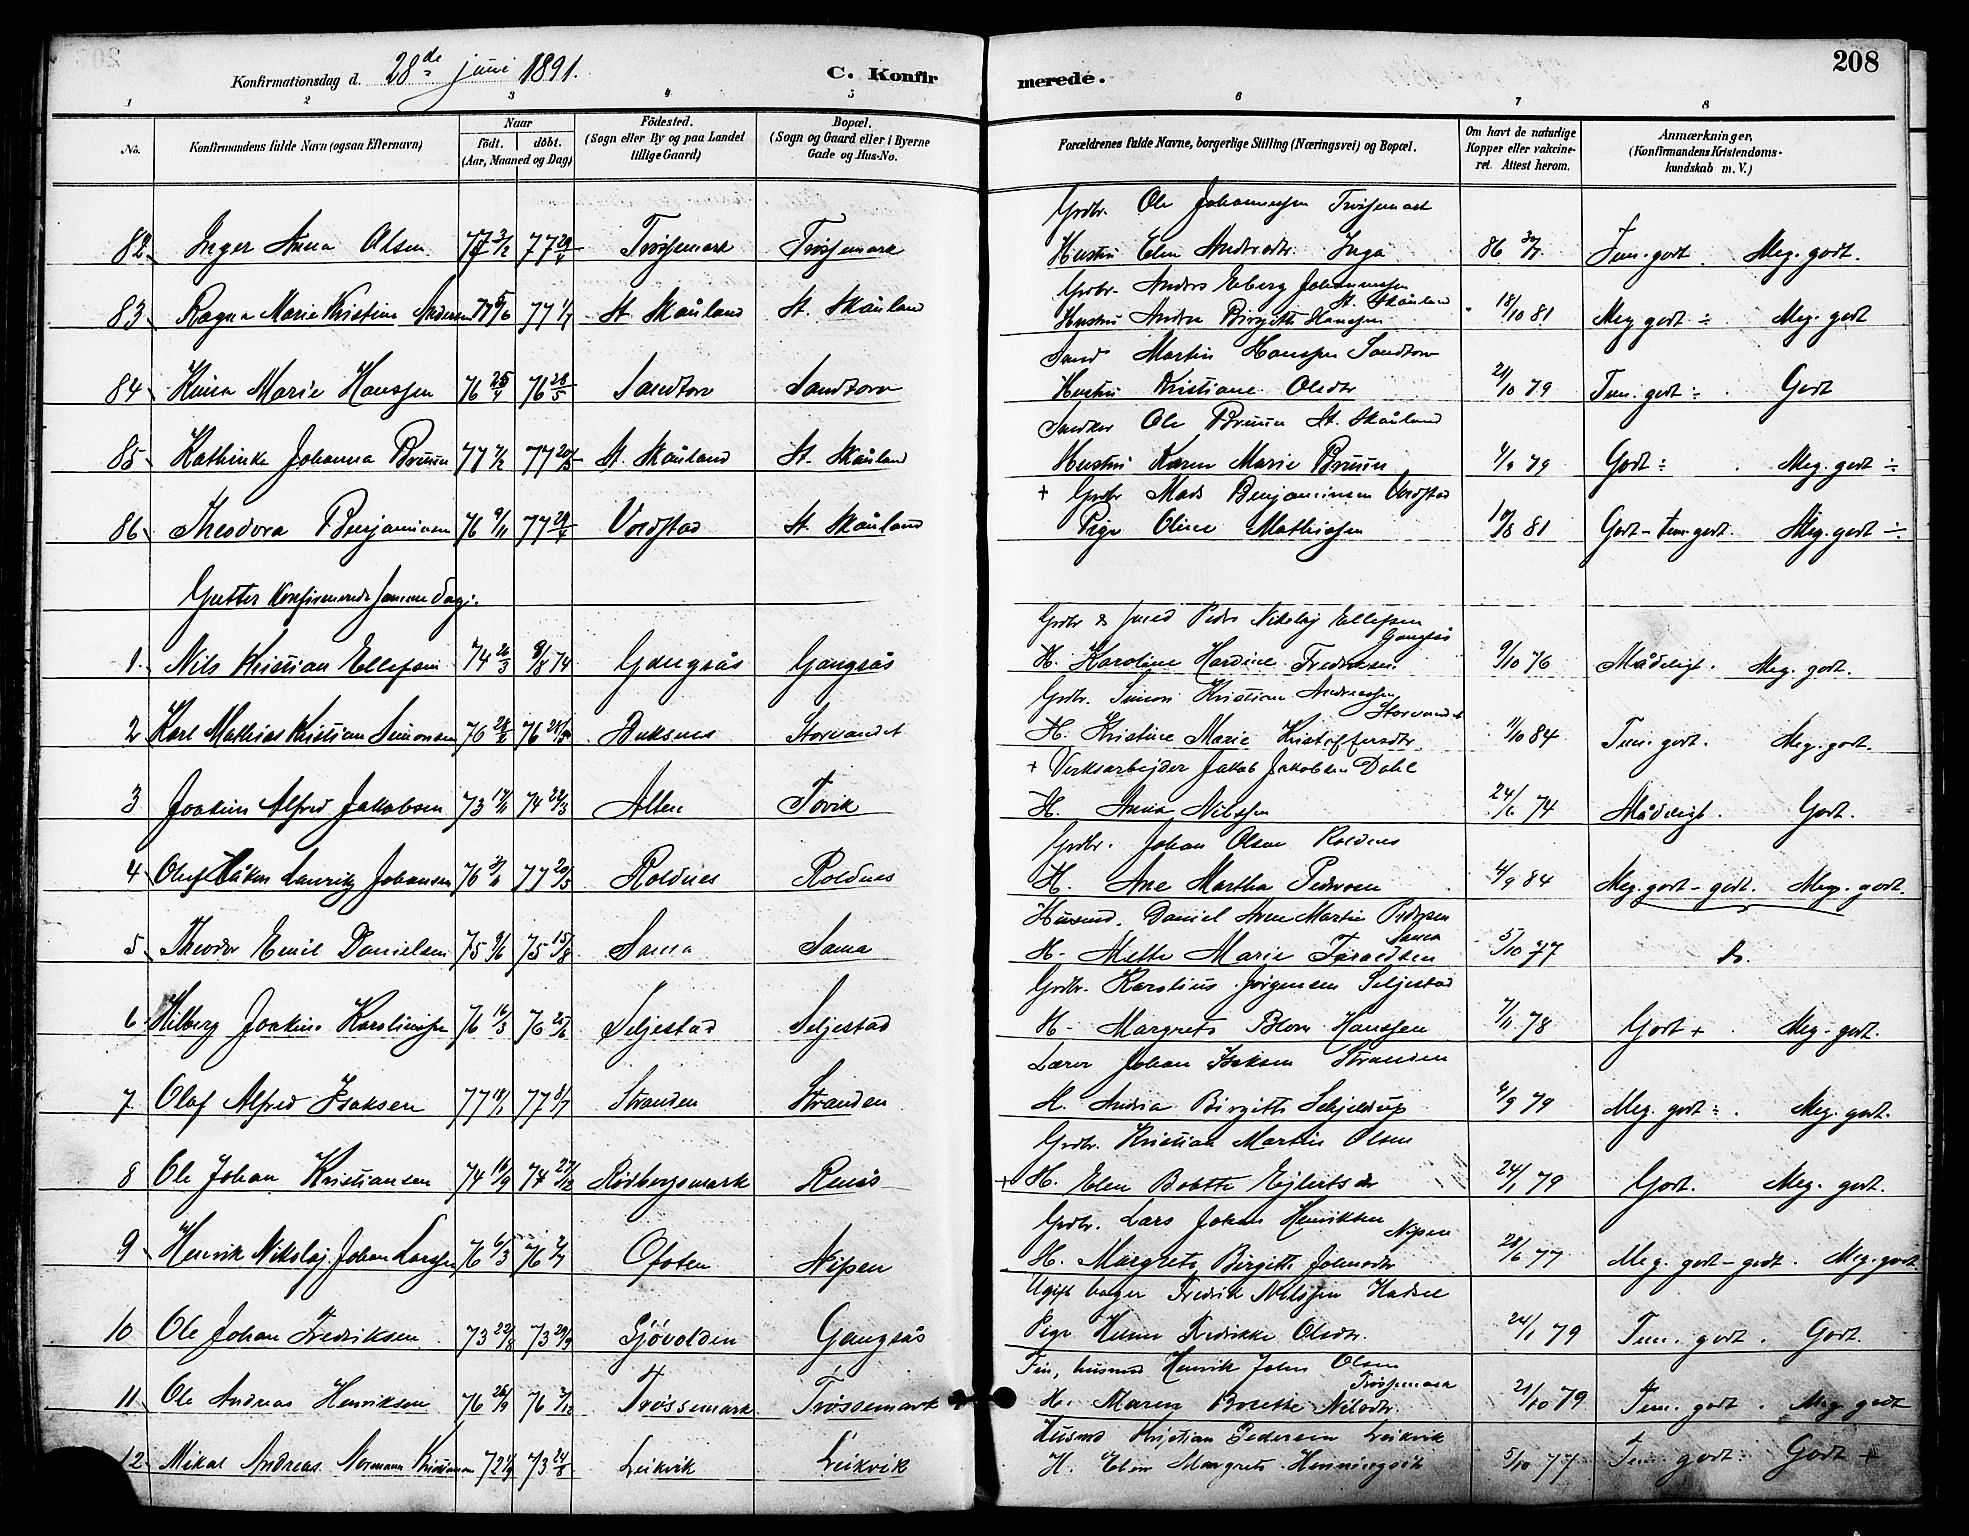 208
Konfirmationsdag d. 28de juni 1891. C. Konfirmerede.
1 2 3 4 5 6 7 8
No. Konfirmandens fulde Navn (ogsaa Efternavn) Naar født. døbt. (Aar, Maaned og Dag) Fødested. (Sogn eller By og paa Landet tillige Gaard) Bopæl. (Sogn og Gaard eller i Byerne Gade og Hus-No. Forældrenes fulde Navne, borgerlige Stilling (Næringsvei) og Bopæl. Om havt de naturlige Kopper eller vaccineret. Attest herom. Anmærkninger. (Konfirmandens Kristendomskundskab m. V.)
Grdbr. Ole Johannessen Trøssemark
82 Inger Anna Olsen 77 3/2 77 29/4 Trøssemark Trøssemark Hustru Elen Andrsdtr. Inga 86 Tem. godt. Meg. godt.
Grdbr. Anders Eberg Johannessen St. Skånland
83 Ragna Marie Kristine Andersen 77 5/6 77 1/7 St. Skånland St. Skånland Hustru Andrea Birgitte Hanssen 18/10 81 Meg godt ÷ Meg. godt
Martin Hanssen Sandtorv
84 Marie Hanssen 76 25/4 76 28/5 Sandtorv Sandtorv Hustru Kristiane Olsdtr 21/10 79 Tem. godt ÷ Godt
Ole Bruun St. Skånland
85 Kathinka Johanna Bruun 77 7/2 77 20/5 St. Skånland St. Skånland Hustru Karen Marie Bruun 4/9 79 Godt ÷ Meg. godt ÷
+ Grdbr Mads Benjaminsen Voldstad
86 Theodora Benjaminsen 76 9/11 77 29/4 Voldstad St. Skånland Pige Oline Mathissen 81 Godt - tem. godt. Meg. godt ÷
Gutter Konfirmerede samme Dag:
Grdbr & smed Peder Nikolaj Ellefsen Gangsås
1. Nils Kristian Ellefsen 74 26/3 9/8 74 Gangsås Gangsås H. Karoline Hardine Fredriksen 9/10 76 Mådeligt. Meg. godt.
Grdbr. Simon Kristian Andreassen Storvandet
2 Karl Mathias Kristian Simonsen 76 76 28/5 Storvandet H. Kristine Marie Kristoffersdtr 1/10 84 Tem. godt. Meg. godt.
+ Verksarbejder Jakob Jakobsen Dahl
3 Joakim Alfred Jakobsen 73 17/11 74 22/3 Alten Tovik H. Anna Nilssen 24/6 74 Mådeligt. Godt.
Grdbr. Johan Olsen Roldnes
4 Oluf Håkon Lauritz Johansen 76 77 20/5 Roldnes Roldnes H. Ane Martha Pedersen 4/9 84 Meg. godt - godt. Meg. godt.
Husmd. Daniel Arne Martin Pedersen Sama
5 Theodor Emil Danielsen 75 9/6 75 15/8 Sama Sama H. Mette Marie Toraldsen 5/10 77 do.
Grdbr. Karolius Jørgensen Seljestad
6 Hilberg Joakim Karoliussen 76 16/3 76 25/6 Seljestad Seljestad H. Margrete Blom Hanssen 7/11 78 Godt + Meg. godt.
Lærer Johan Isaksen Stranden
7 Olaf Alfred Isaksen 77 18/1 77 8/7 Stranden Stranden H. Andrea Birgitte Schjelderup 4/9 79 Meg. godt ÷ Meg. godt.
Grdbr. Kristian Martin Olsen
8 Ole Johan Kristiansen 74 16/9 74 27/12 Rødbergsmark Renså + H. Elen Bobette Ejlertsdtr 24/1 79 Godt. Meg. godt.
Grdbr. Lars Johan Henriksen Nipen
9 Henrik Nikolaj Johan Larssen 76 6/3 76 2/7 Ofoten Nipen H. Margrete Birgitte Johnsdtr 28/6 77 Meg. godt - godt. Meg. godt
Ugift bager Fredrik Nilssen Hadsel
10 Ole Johan Fredriksen 73 22/8 73 29/9 Sjøvolden Gangsås Pige Helene Fredrikke Olsdtr. 24/1 79 Tem. godt. Godt.
Fin, husmd Henrik John Olsen Trøssemark
11 Ole Andreas Henriksen 76 26/9 76 3/12 Trøssemark Trøssemark H. Maren Bosette Nilsdtr. 21/10 79 Tem. godt. Meg. godt
Husmd Kristian Pedersen Leikvik
12 Mikal Andreas Normann Kristiansen 72 73 24/8 Leikvik Leikvik H. Elen Margrete Henningsdtr 5/10 77 Tem godt. Godt +